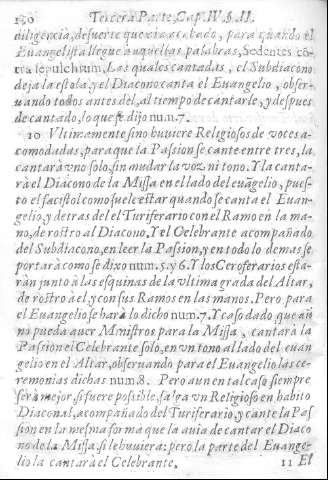 150 Tercera Parte, Cap. IV. §. II.
diligencia, de suerte que està acabado, para quando el
Euangelista llegue à aquellas palabras, Sedentes cō-
tra sepulchrum. Las quales cantadas, el Subdiacono
deja la estola, y el Diacono canta el Euangelio, obser-
uando todos antes dèl, al tiempo de cantarle, y despues
de cantado, lo que se dijo num. 7.
10 Vltimamente sino huuiere Religiosos de voces a-
comodadas, para que la Passion se cante entre tres, la
cantarà vno solo, sin mudar la voz ni tono. Y la canta-
rà el Diacono de la Missa en el lado del euāgelio, pues-
to el facistol como suele estar quando se canta el Euan-
gelio, y detras del el Turiferario con el Ramo en la ma-
no, de rostro al Diacono, Y el Celebrante acompañado
del Subdiacono, en leer la Passion, y en todo lo demas se
portarà como se dixo num. 5. y 6. Y los Ceroferarios esta-
ràn junto à las esquinas de la vltima grada del Altar,
de rostro à el, y con sus Ramos en las manos. Pero para
el Euangelio se harà lo dicho num. 7. Y caso dado que aū
no pueda auer Ministros para la Missa, cantarà la
Passion el Celebrante solo, en vn tono al lado del euan
gelio en el Altar, obseruando para el Euangelio las ce-
remonias dichas num. 8. Pero aun en tal caso siempre
serà mejor, si fuere possible, salga vn Religioso en habito
Diaconal, acompañado del Turiferario, y cante la Pas
sion en la mesma forma que la auia de cantar el Diaco
no de la Missa, si le huuiera: pero la parte del Euange-
lio la cantarà el Celebrante.
11 El